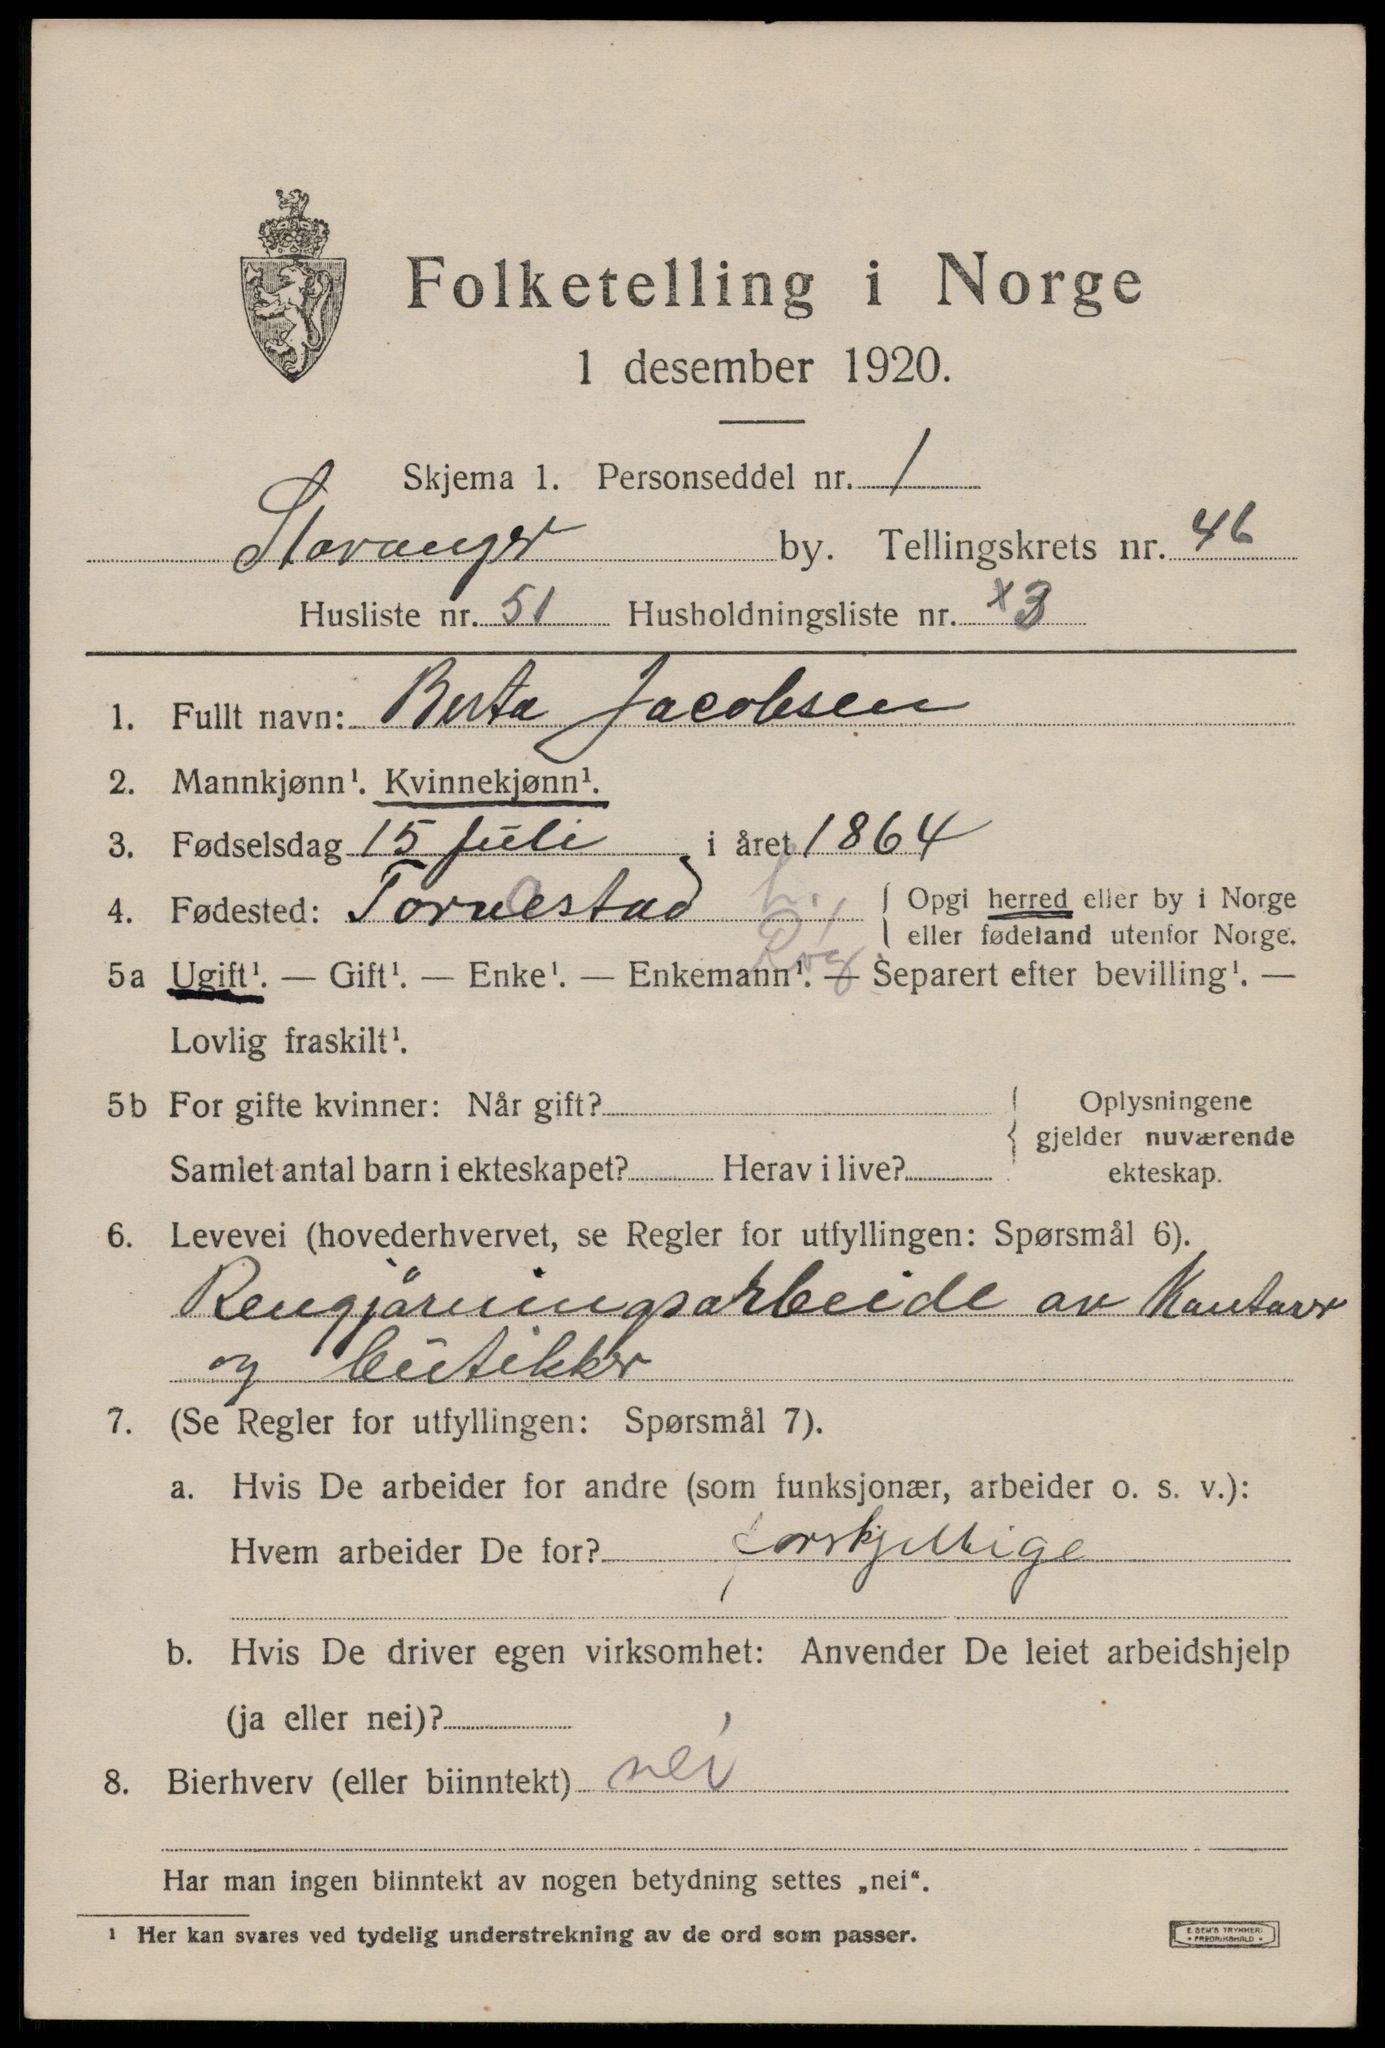 Folketelling i Norge
1 desember 1920.
Skjema 1. Personseddel nr. 1
Stavanger by. Tellingskrets nr. 46
Husliste nr. 51 Husholdningsliste nr. x3
1. Fullt navn: Berta Jacobsen
2. Mannkjønn¹. Kvinnekjønn¹.
3. Fødselsdag 15 juli i året 1864
4. Fødested: Tornestad h. { Opgi herred eller by i Norge
Rog. eller fødeland utenfor Norge.
5a Ugift¹. — Gift¹. — Enke¹. — Enkemann¹. — Separert efter bevilling¹. —
Lovlig fraskilt¹.
5b For gifte kvinner: Når gift? { Oplysningene
gjelder nuværende
Samlet antal barn i ekteskapet? Herav i live? ekteskap.
6. Levevei (hovederhvervet, se Regler for utfyllingen: Spørsmål 6).
Rengjöringsarbeide av Kontorer
og butikker
7. (Se Regler for utfyllingen: Spørsmål 7).
a. Hvis De arbeider for andre (som funksjonær, arbeider o. s. v.):
Hvem arbeider De for? forskjellige
b. Hvis De driver egen virksomhet: Anvender De leiet arbeidshjelp
(ja eller nei)?
8. Bierhverv (eller biinntekt) nei
Har man ingen biinntekt av nogen betydning settes „nei“.
¹ Her kan svares ved tydelig understrekning av de ord som passer.
E. SEM'S TRYKKERI
• FREDRIKSHALD •